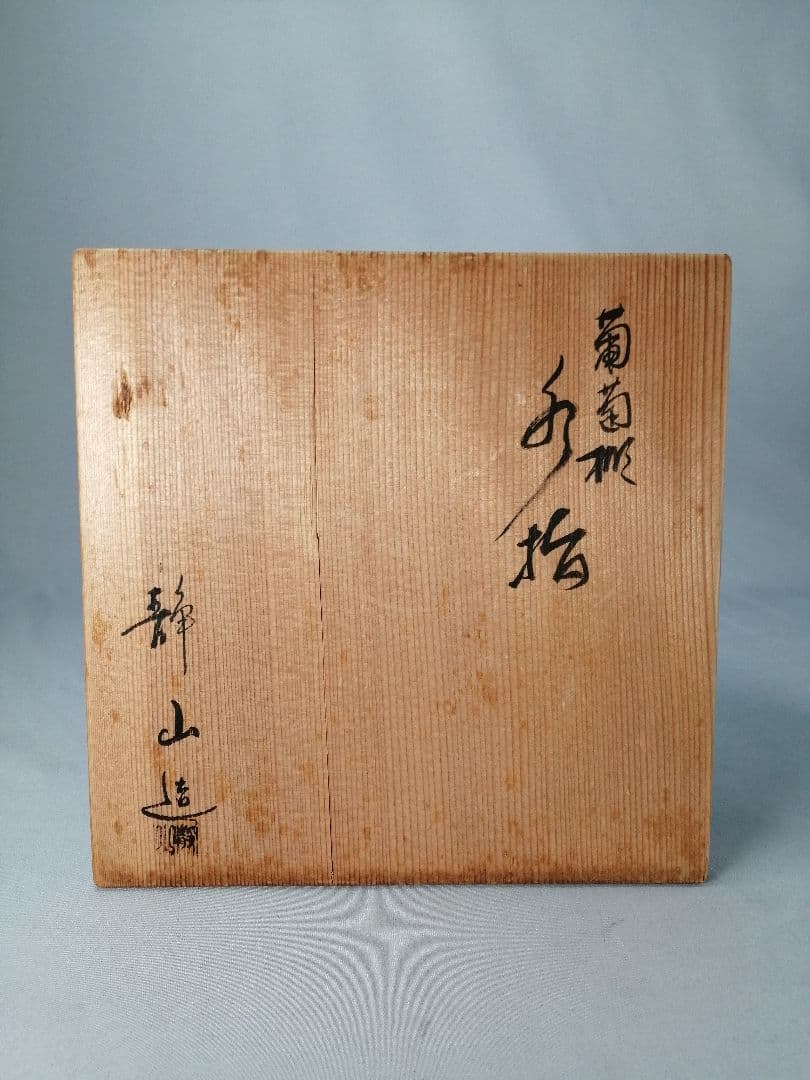 葡萄棚
水指
静山造